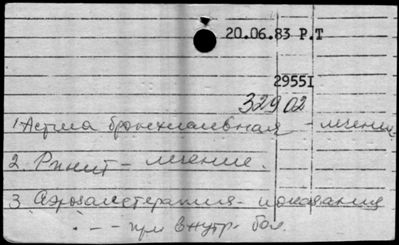 20.06.83 Р.Т
29551
32902
1 Астма бронхиальная - лечение
2. Ринит - лечение.
3 Аэрозолетерапия - показания
- " - при внутр. бол.